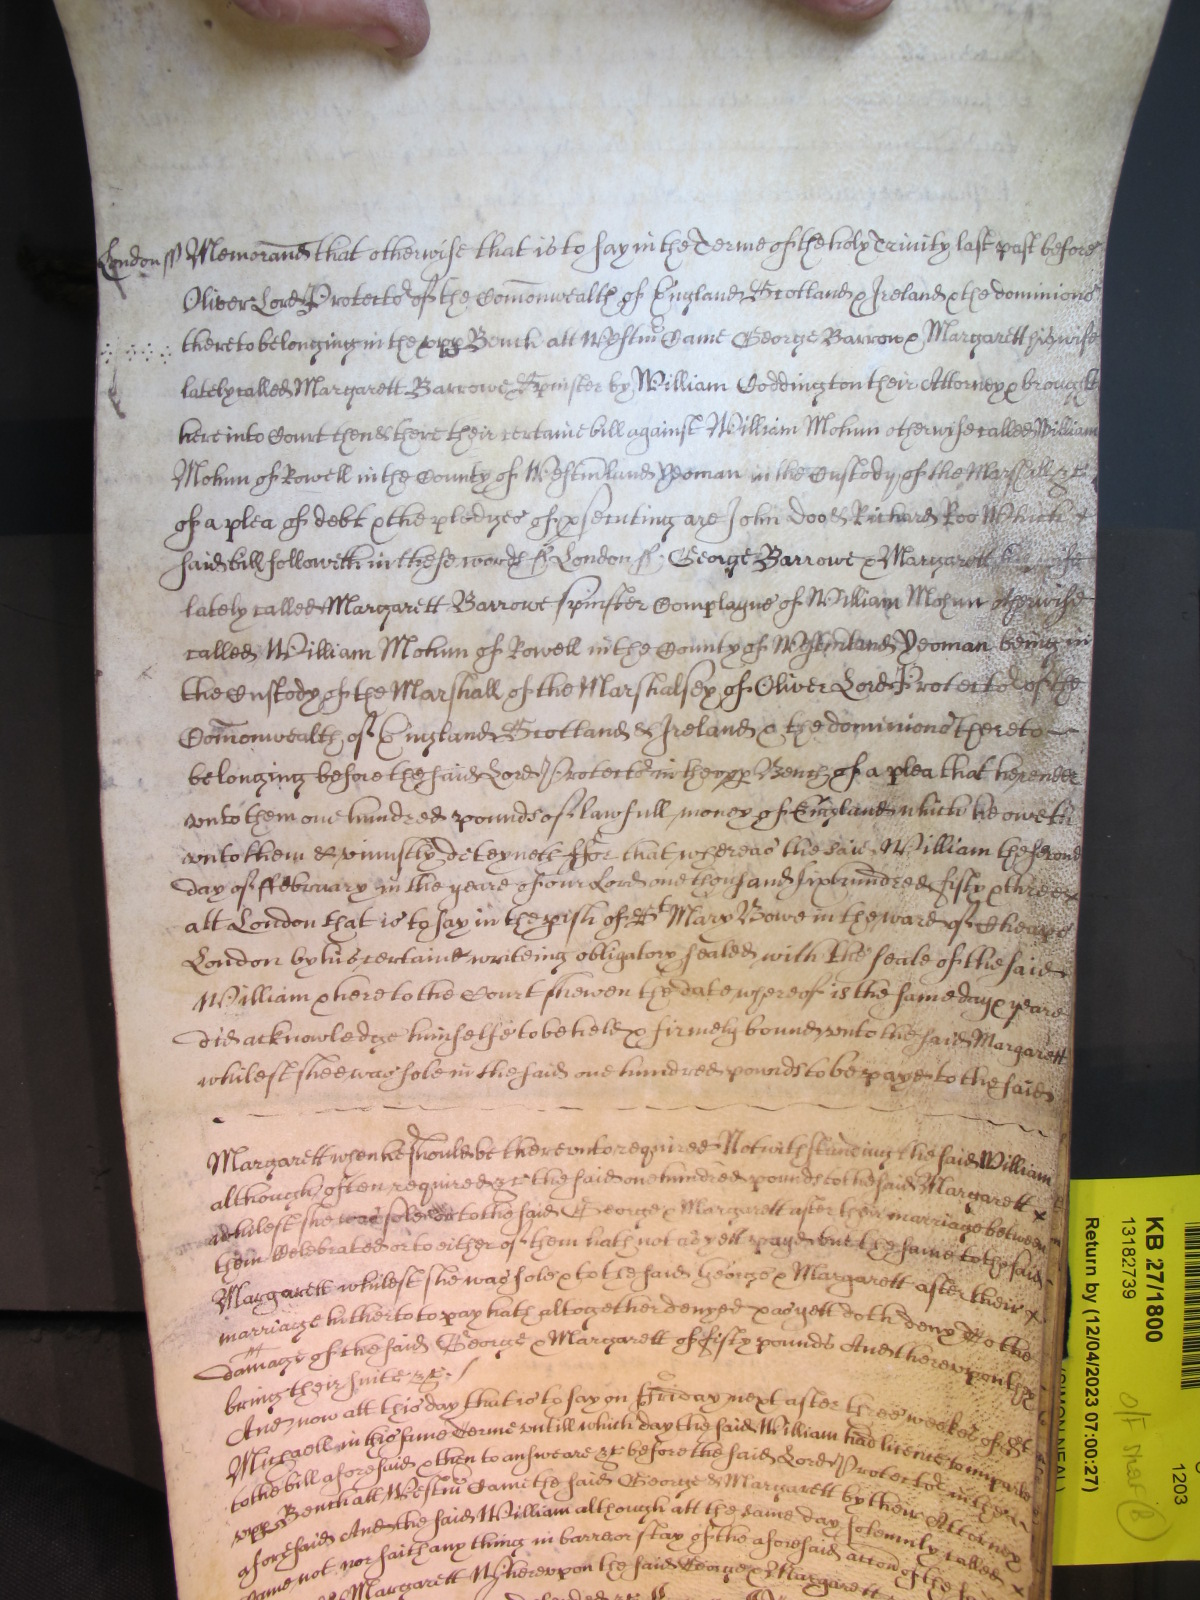 London ss Memorand that otherwise that is to say in the Terme of the holy Trinity last past before
Oliver Lord Protector of the Comonwealth of England Scotland & Ireland & the dominions
thereto belonging in the upp Bench att Westm Came George Barrow & Margarett his wife
lately called Margarett Barrowe Spinster by William Coddington their Attorney & brought
here into Court then & there their certaine bill against William Mohun otherwise called William
Mohun of Rowell in the County of Westmland Yeoman in the Custody of the Marshall &c
of a plea of debt & the pledges of psecuting are John Doo & Richard Roo Which
said bill followeth in these words ss London ss George Barrowe & Margarett his wife
lately called Margarett Barrowe spinster Complayne of William Mohun otherwise
called William Mohun of Rowell in the County of Westmland Yeoman being in
the Custody of the Marshall of the Marshalsey of Oliver Lord Protector of the
Comonwealth of England Scotland & Ireland & the dominions thereto
belonging before the said Lord Protector in the upp Bench of a plea that he render
unto them one hundred pounds of lawfull money of England which he oweth
unto them & uniustly deteyneth ffor that whereas the said William the second
day of ffebruary in the yeare of our Lord one thousand six hundred fifty & three
att London that is to say in the pish of St Mary Bowe in the ward of Cheape
London by his certaine writeing obligatory sealed with the seale of the said
William & here to the Court shewen the date whereof is the same day & yeare
did acknowledge himselfe to be held & firmely bound unto the said Margarett
whilest shee was sole in the said one hundred pounds to be payd to the said
Margarett when he should be thereunto required Notwithstanding the said William
although often required &c the said one hundred pounds to the said Margarett
whilest she was sole or to the said George & Margarett after their marriage between
them celebrated or to either of them hath not as yett payd but the same to the said
Margarett whilest she was sole & to the said George & Margarett after their
marriage hitherto to pay hath altogether denyed & as yett doth deny To the
damage of the said George & Margarett of fifty pounds And thereupon they
bring their suite &c
And now att this day that is to say on Friday next after three weekes of St
Michaell in this same Terme untill which day the said William had licence to imparle
to the bill aforesaid & then to answeare &c before the said Lord Protector in the
upp Bench att Westm Came the said George & Margarett by their Attorney
aforesaid And the said William although att the same day solemnly called
came not nor saith any thing in barre or stay of the aforesaid accon of the said
Margarett Whereupon the said George & Margarett
KB 27/1800
13182739
Return by (12/04/2023 07:00:27)
1203